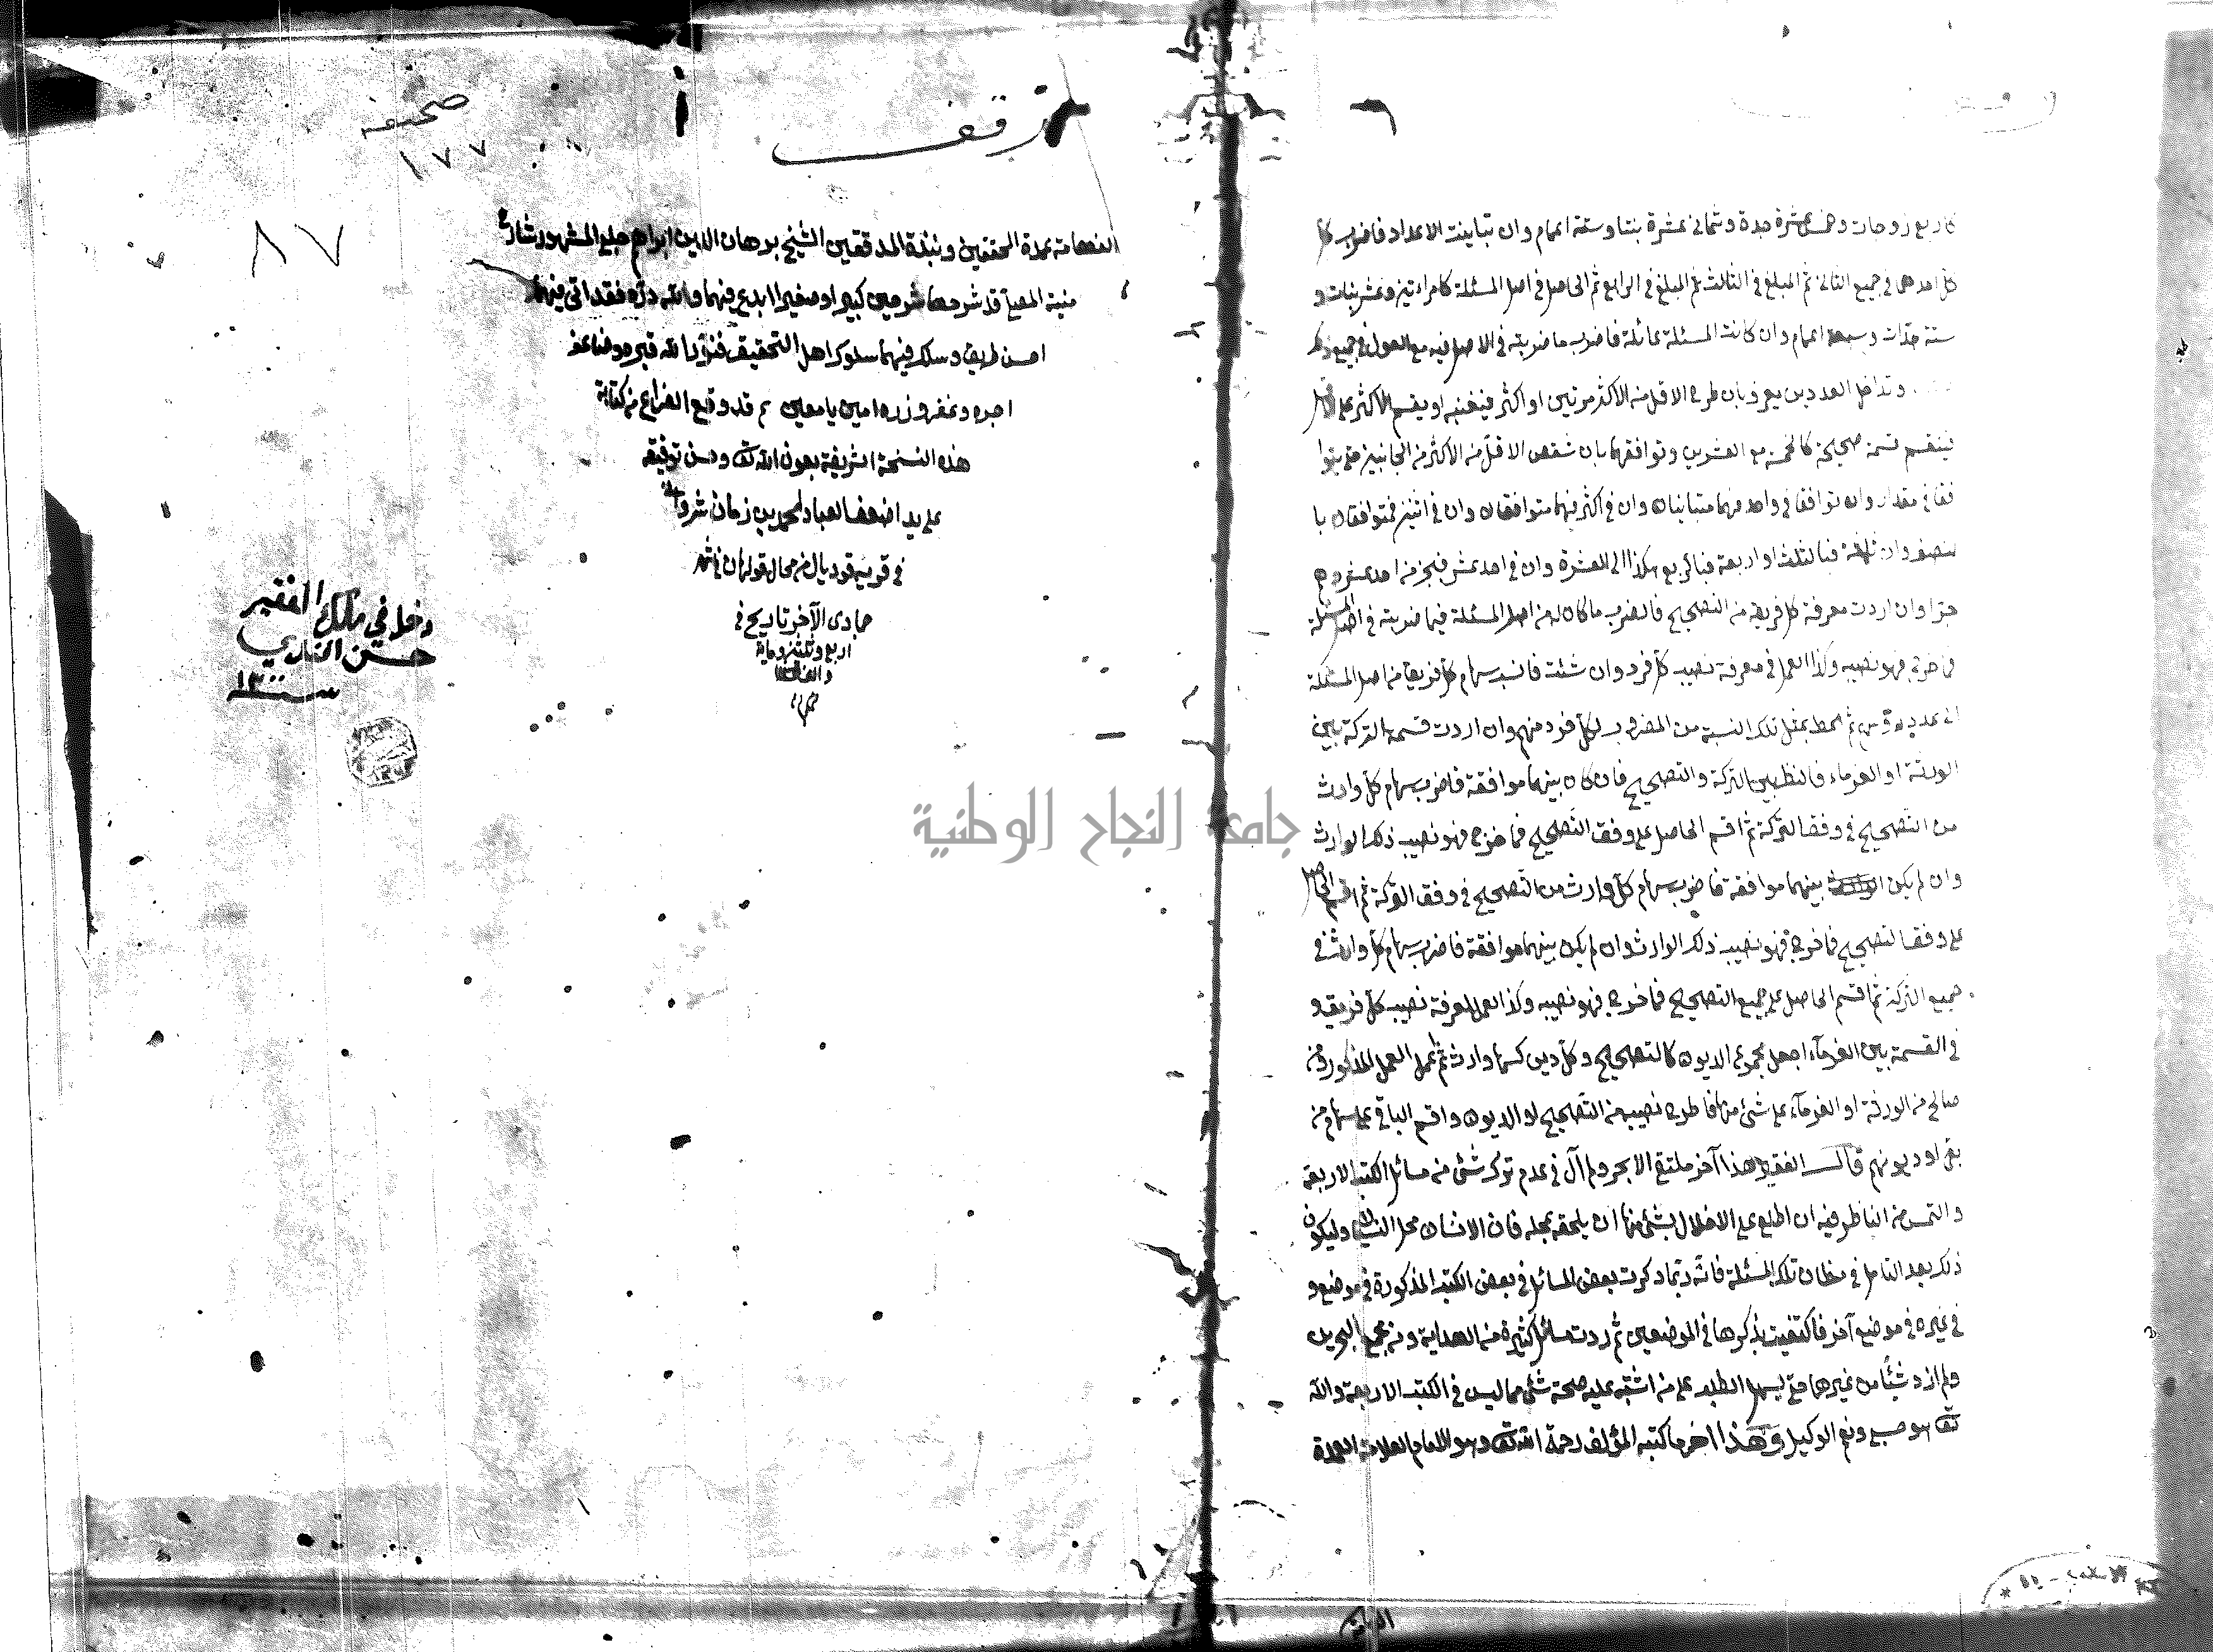 كاربع زوجات وخمس عشرة جدة وثماني عشرة بنتا وستة اعمام وان تباينت الاعداد فاضرب كل
كل احدهما في جميع الثاني ثم المبلغ في الثالث ثم المبلغ في الرابع ثم الحاصل في اصل المسئلة كامراءتين وعشر بنات و
ستة جدات وسبعة اعمام وان كانت المسئلة عائلة فاضرب ما ضربته في الاصل فيه مع العول في جميع ذلك
وتداخل العددين يعرف بان طرح الاقل من الاكثر مرتين او اكثر فيفنيه او يقسم الاكثر على الاقل
فينقسم قسمة صحيحة كالخمسة مع العشرين وتوافقهما بان تنقص الاقل من الاكثر من الجانبين حتى يتوا
فقا في مقدار وان توافقا في واحد فهما متباينان وان في اكثر فهما متوافقان وان في اثنين فمتوافقان با
لنصف وان ثلثة فبالثلث او اربعة فبالربع هكذا الى العشرة وان في احد عشر فبجزء من احد عشر وهلم
جرا وان اردت معرفة كل فريق من التصحيح فاضرب ما كان له من اصل المسئلة فيما ضربته في اصل المسئلة
فما خرج فهو نصيبه وكذا العمل في معرفة نصيب كل فرد وان شئت فانسب سهام كل فريق من اصل المسئلة
الى عدد رؤسهم ثم اعط بمثل تلك النسبة من المضروب لكل فرد منهم وان اردت قسمة التركة بين
الورثة او الغرماء فانظر بين التركة والتصحيح فان كان بينهما موافقة فاضرب سهام كل وارث
من التصحيح في وفق التركة ثم اقسم الحاصل على وفق التصحيح فما خرج فهو نصيب ذلك الوارث
وان لم يكن بينهما موافقة فاضرب سهام كل وارث من التصحيح في وفق التركة ثم اقسم الحاصل
على وفق التصحيح فما خرج فهو نصيب ذلك الوارث وان لم يكن بينهما موافقة فاضرب سهام كل وارث في
جميع التركة ثم اقسم الحاصل على جميع التصحيح فما خرج فهو نصيبه وكذا العمل لمعرفة نصيب كل فريق و
في القسمة بين الغرماء اجعل مجموع الديون كالتصحيح وكل دين كسهام وارث ثم اعمل العمل المذكور ومن
صالح من الورثة او الغرماء على شئ منها فاطرح نصيبه من التصحيح او الديون واقسم الباقي على سهام من
بقى او ديونهم قال الفقير هذا آخر ملتقى الابحر ولم آل في عدم ترك شئ من مسائل الكتب الاربعة
والتمس من الناظر فيه ان اطلع على الاخلال بشئ منها ان يلحقه بمحله فان الانسان محل النسيان وليكون
ذلك بعد التامل في مظان تلك المسئلة فانه ربما ذكرت بعض المسائل في بعض الكتب المذكورة في موضع و
في غيره في موضع آخر فاكتفيت بذكرها في الموضعين ثم زدت مسائل كثيرة من الهداية ومن مجمع البحرين
ولم ازد شيئا من غيرهما حتى يسهل الطلب على من اشتبه عليه صحة شئ مما ليس في الكتب الاربعة والله
تعالى هو حسبي ونعم الوكيل وهذا اخر ما كتبه المؤلف رحمة الله تعالى وهو الامام العلامة العمدة
الفهامة عمدة المحققين ونبذة المدققين الشيخ برهان الدين ابراهيم حلبي المشهور بشارح
منية المصلي قد شرحها شرحين كبيرا وصغيرا ابدع فيهما ولله دره فقد اتى فيهما
احسن طريق وسلك فيهما سلوك اهل التحقيق فنور الله قبره وضاعف
اجره وغفر وزره امين يا معين م قد وقع الفراغ من كتابة
هذه النسخة الشريفة بعون الله تعالى وحسن توفيقه
على يد اضعف العباد محمد بن زمان
في قرية من محال في شهر
جمادى الآخر تاريخ في
اربع وثلثين ومائة
والف
صحيفه
١٧٧
٨٧
دخل في ملك الفقير
حسن
سنة ١٣٠٠
جامعة النجاح الوطنية